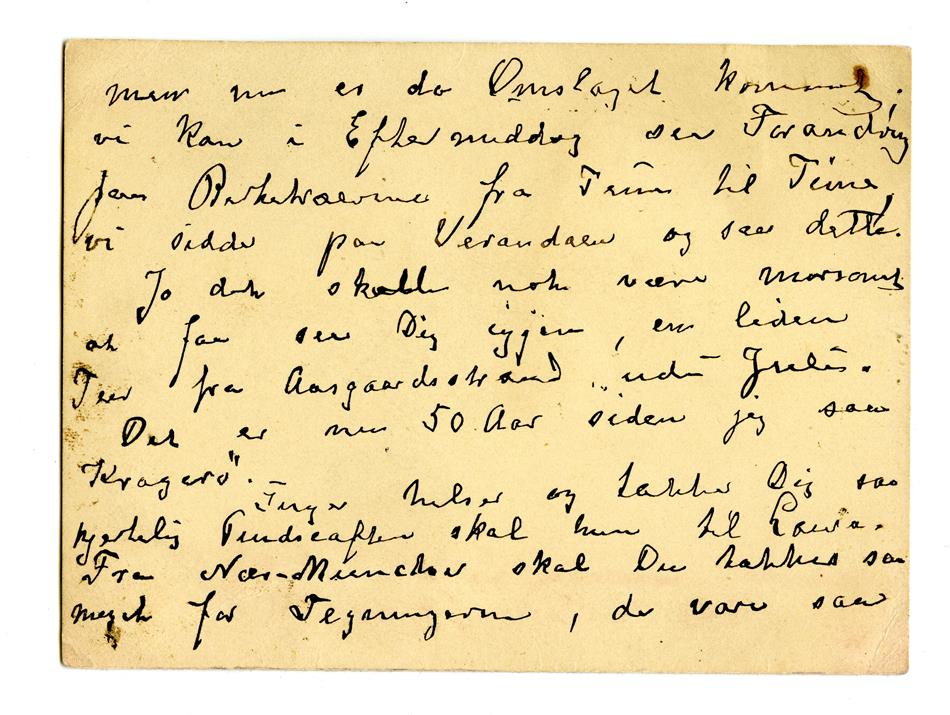 men nu er da Omslaget kommet;
vi kan i Eftermiddag see Forandring
paa Birketræerne fra Time til Time,
vi sidder paa Verandaen og saa dette.
Jo det skulde nok være morsomt
at faa see Dig igjen, en liden
Tur fra Aasgaardsstrand
Det er nu 50 Aar siden jeg saa
Kragerø".
Inger hilser og takker Dig saa
hjertelig Tirsdeaften skal hun til
Fra Næs-Muncher skal Du takkes saa
meget for Tegningerne, de vare saa